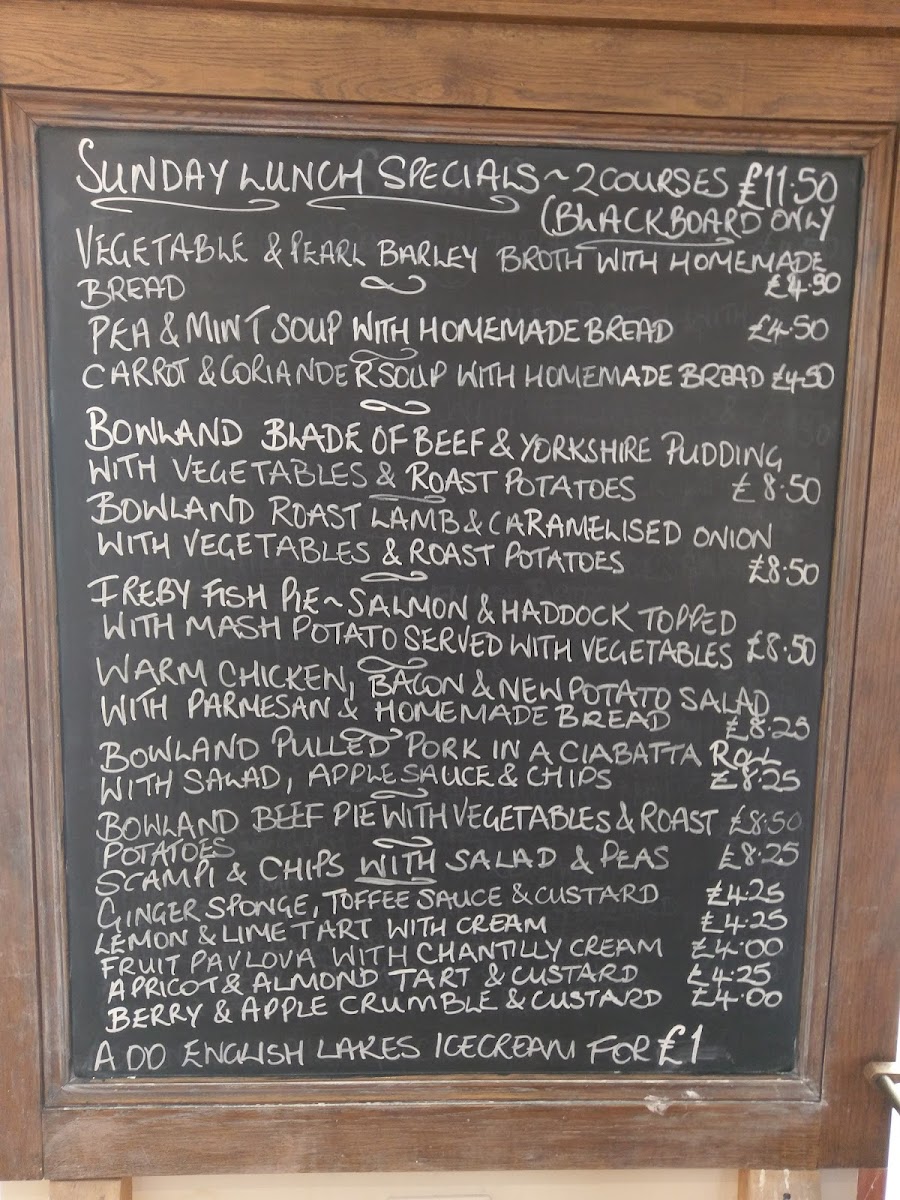 SUNDAY LUNCH SPECIALS ~ 2 COURSES £11.50
(BLACKBOARD ONLY
VEGETABLE & PEARL BARLEY BROTH WITH HOMEMADE
BREAD £4.50
PEA & MINT SOUP WITH HOMEMADE BREAD £4.50
CARROT & CORIANDER SOUP WITH HOMEMADE BREAD £4.50
BOWLAND BLADE OF BEEF & YORKSHIRE PUDDING
WITH VEGETABLES & ROAST POTATOES £8.50
BOWLAND ROAST LAMB & CARAMELISED ONION
WITH VEGETABLES & ROAST POTATOES £8.50
FREBY FISH PIE ~ SALMON & HADDOCK TOPPED
WITH MASH POTATO SERVED WITH VEGETABLES £8.50
WARM CHICKEN, BACON & NEW POTATO SALAD
WITH PARMESAN & HOMEMADE BREAD £8.25
BOWLAND PULLED PORK IN A CIABATTA ROLL
WITH SALAD, APPLE SAUCE & CHIPS £8.25
BOWLAND BEEF PIE WITH VEGETABLES & ROAST £8.50
POTATOES
SCAMPI & CHIPS WITH SALAD & PEAS £8.25
GINGER SPONGE, TOFFEE SAUCE & CUSTARD £4.25
LEMON & LIME TART WITH CREAM £4.25
FRUIT PAVLOVA WITH CHANTILLY CREAM £4.00
APRICOT & ALMOND TART & CUSTARD £4.25
BERRY & APPLE CRUMBLE & CUSTARD £4.00
ADD ENGLISH LAKES ICECREAM FOR £1